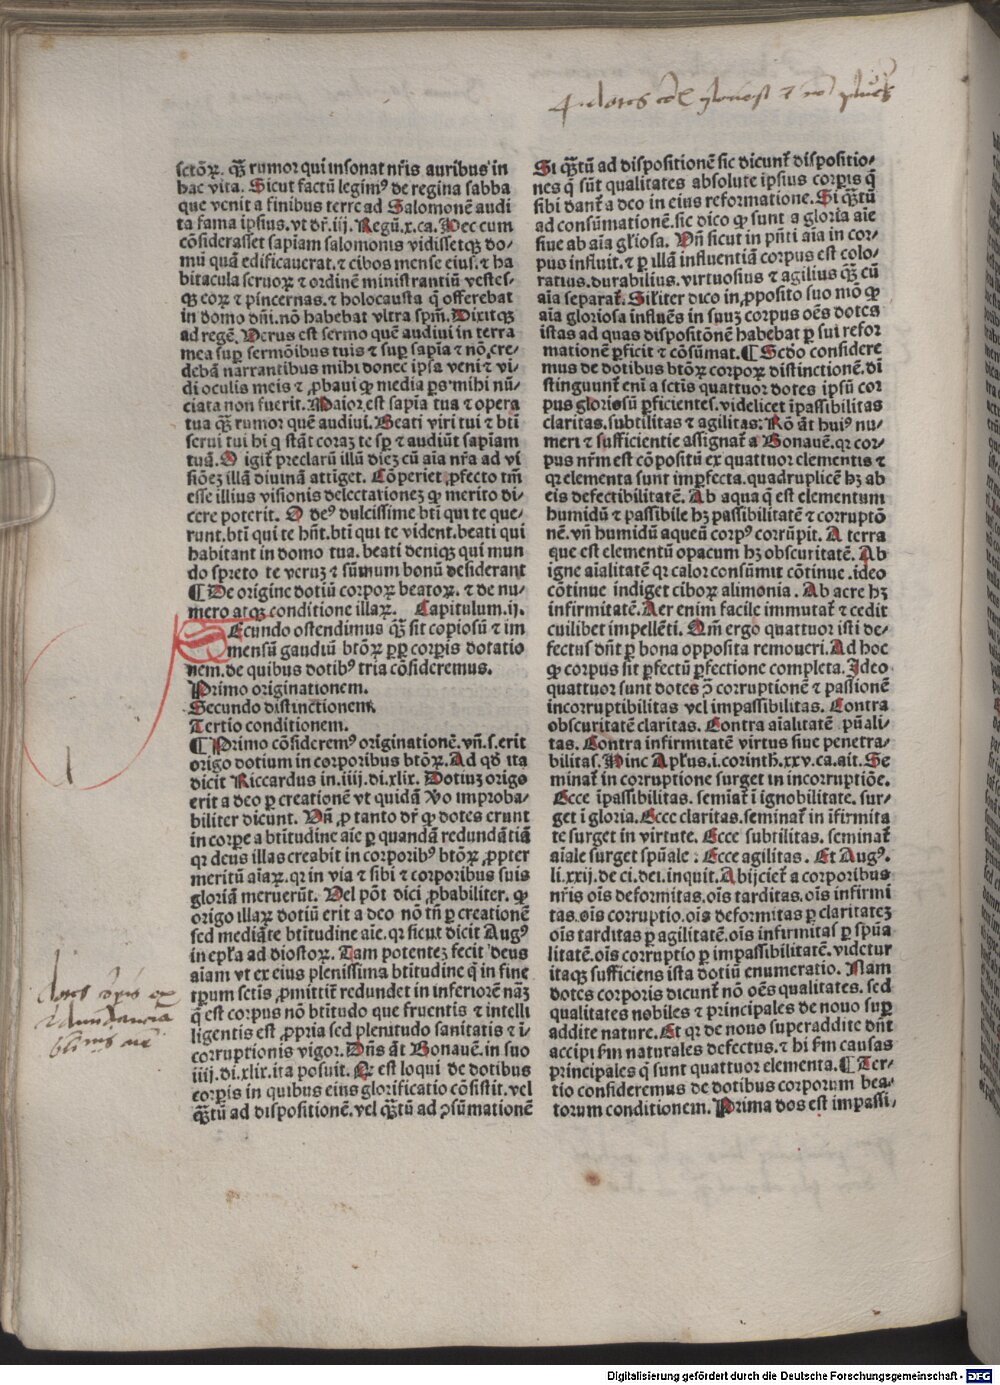 sctōꝝ. qȝ rumor qui insonat nr̄is auribus in
hac vita. Sicut factū legim⁹ de regina sabba
que venit a finibus terre ad Salomonē audi
ta fama ipsius. vt dr̄. iij. Regū. x. ca. Nec cum
cōsiderasset sapiam salomonis vidissetqȝ do-
mū quā edificauerat. ⁊ cibos mense eius. ⁊ ha
bitacula seruoꝝ ⁊ ordinē ministrantiū vestes-
qȝ eoꝝ ⁊ pincernas. ⁊ holocausta q̄ offerebat
in domo dn̄i. nō habebat vltra spm̄. Dixitqȝ
ad regē. Verus est sermo quē audiui in terra
mea sup̱ sermōibus tuis ⁊ sup̱ sapīa ⁊ nō cre-
debā narrantibus mihi donec ipsa veni ⁊ vi-
di oculis meis ⁊ ꝓbaui ꝙ media ꝑs mihi nū-
ciata non fuerit. Maior est sapīa tua ⁊ opera
tua qȝ rumor quē audiui. Beati viri tui ⁊ bt̄i
serui tui hi q stāt coraȝ te sꝑ ⁊ audiūt sapīam
tuā. O igit̄ preclarū illū dieȝ cū aīa nr̄a ad vi
sioēȝ illā diuinā attiget. Cōperiet ꝓfecto tm̄
esse illius visionis delectationeȝ ꝙ merito di-
cere poterit. O de⁹ dulcissime bt̄i qui te que-
runt. bt̄i qui te hn̄t. bt̄i qui te vident. beati qui
habitant in domo tua. beati deniqȝ qui mun
do spreto te veruȝ ⁊ sūmum bonū desiderant
¶ De origine dotiū corpoꝝ beatoꝝ. ⁊ de nu-
mero atqȝ conditione illaꝝ. Capitulum. ij.
SEcundo ostendimus qȝ sit copiosū ⁊ im
mensū gaudiū btōꝝ ꝓp̱ corp̱is dotatio
nem. de quibus dotib⁹ tria cōsideremus.
Primo originationem.
Secundo distinctionem.
Tertio conditionem.
¶ Primo cōsiderem⁹ originationē. vn̄. s. erit
origo dotium in corporibus btōꝝ. Ad qd̄ ita
dicit Riccardus in. iiij. di. xlix. Dotiuȝ origo
erit a deo ꝑ creationē vt quidā vo improba-
biliter dicunt. Vn̄ ꝑ tanto dr̄ ꝙ dotes erunt
in corpe a btītudine aīe ꝑ quandā redundātiā
qr deus illas creabit in corporib⁹ btōꝝ ꝓpter
meritū aīaꝝ. qr in via ⁊ sibi ⁊ corporibus suis
gloriā meruerūt. Vel pōt dici ꝓbabiliter. ꝙ
origo illaꝝ dotiū erit a deo nō tn̄ ꝑ creationē
sed mediāte btītudine aīe. qr sicut dicit Aug⁹
in ep̄ła ad diostoꝝ. Tam potenteȝ fecit deus
aīam vt ex eius plenissima btītudine q̄ in fine
tp̄um sctis ꝓmittit̄ redundet in inferiorē nāȝ
q̄ est corpus nō btītudo que fruentis ⁊ intelli
ligentis est ꝓpria sed plenitudo sanitatis ⁊ i-
corruptionis vigor. Dn̄s āt Bonauē. in suo
iiij. di. xlix. ita posuit. Ac est loqui de dotibus
corp̱is in quibus eius glorificatio cōsistit. vel
qȝtū ad dispositionē. vel qȝtū ad ꝯsūmationē
Si qȝtū ad dispositionē sic dicunt̄ dispositio-
nes q̄ sūt qualitates absolute ip̄sius corp̱is q̄
sibi dant̄ a deo in eius reformatione. Si qȝtū
ad consūmationē. sic dico ꝙ sunt a gloria aīe
siue ab aīa gl̄iosa. Vn̄ sicut in pn̄ti aīa in cor-
pus influit. ⁊ ꝑ illā influentiā corpus est colo-
ratius. durabilius. virtuosius ⁊ agilius qȝ cū
aīa separat̄. Sil̄iter dico in ꝓposito suo mō ꝙ
aīa gloriosa influēs in suuȝ corpus oēs dotes
istas ad quas dispositōnē habebat ꝑ sui refor
mationē ꝑficit ⁊ cōsūmat. ¶ Scdo considere
mus de dotibus btōꝝ corpoꝝ distinctionē. di
stinguunt̄ enī a sctis quattuor dotes ip̄sū cor
pus gloriosū ꝑficientes. videlicet īpassibilitas
claritas. subtilitas ⁊ agilitas: Rō āt hui⁹ nu-
meri ⁊ sufficientie assignat̄ a Bonauē. qr cor-
pus nr̄m est cōpositū ex quattuor elementis ⁊
qr elementa sunt imꝑfecta. quadruplicē hȝ ab
eis defectibilitatē. Ab aqua q̄ est elementum
humidū ⁊ passibile hȝ passibilitatē ⁊ corruptō
nē. vn̄ humidū aqueū corp⁹ corrūpit. A terra
que est elementū opacum hȝ obscuritatē. Ab
igne aīalitatē qr calor consūmit cōtinue. ideo
cōtinue indiget ciboꝝ alimonia. Ab aere hȝ
infirmitatē. Aer enim facile immutat̄ ⁊ cedit
cuilibet impellēti. Qm̄ ergo quattuor isti de-
fectus dn̄t ꝑ bona opposita remoueri. Ad hoc
ꝙ corpus sit ꝑfectū ꝑfectione completa. Ideo
quattuor sunt dotes ꝯ̄ corruptionē ⁊ passionē
incorruptibilitas vel impassibilitas. Contra
obscuritatē claritas. Contra aīalitatē spūali-
tas. Contra infirmitatē virtus siue penetra-
bilitas. Hinc Apl̄us. i. corinth. xv. ca. ait. Se
minat̄ in corruptione surget in incorruptiōe.
Ecce īpassibilitas. semīat̄ ī ignobilitate. sur-
get ī gloria. Ecce claritas. seminat̄ in īfirmita
te surget in virtute. Ecce subtilitas. seminat̄
aīale surget spūale. Ecce agilitas. Et Aug⁹.
li. xxij. de ci. dei. inquit. Abijciet̄ a corporibus
nr̄is oīs deformitas. oīs tarditas. oīs infirmi
tas. oīs corruptio. oīs deformitas ꝑ claritateȝ
oīs tarditas ꝑ agilitatē. oīs infirmitas ꝑ spūa
litatē. oīs corruptio ꝑ impassibilitatē. videtur
itaqȝ sufficiens ista dotiū enumeratio. Nam
dotes corporis dicunt̄ nō oēs qualitates. sed
qualitates nobiles ⁊ principales de nouo sup̱
addite nature. Et qr de nouo superaddite dn̄t
accipi fm naturales defectus. ⁊ hi fm causas
principales q̄ sunt quattuor elementa. ¶ Ter-
tio consideremus de dotibus corporum bea-
torum conditionem. Prima dos est impassi-
dotes
Digitalisierung gefördert durch die Deutsche Forschungsgemeinschaft - DFG